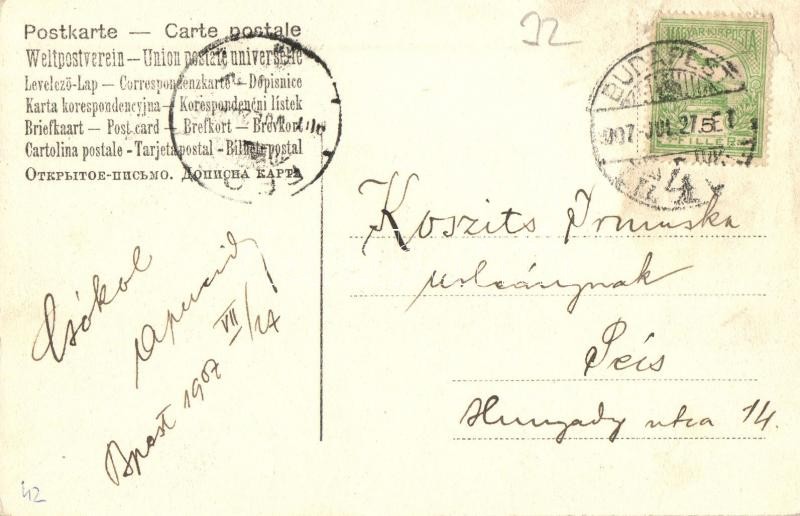 Postkarte — Carte postale
Weltpostverein — Union postale universelle
Levelező-Lap — Correspondenzkarte — Dopisnice
Karta korespondencyjna — Korespondenční lístek
Briefkaart — Post card — Brefkort — Brevkort
Cartolina postale - Tarjeta postal - Billete postal
Открытое-письмо. Дописна карта
92
MAGYAR KIR. POSTA
5
FILLÉR
BUDAPEST
907 JUL 27
Koszits Irmuska
urleánynak
Pécs
Hunyady utca 14.
Csókol
Apucid
Bpest 1907 VII/27
42